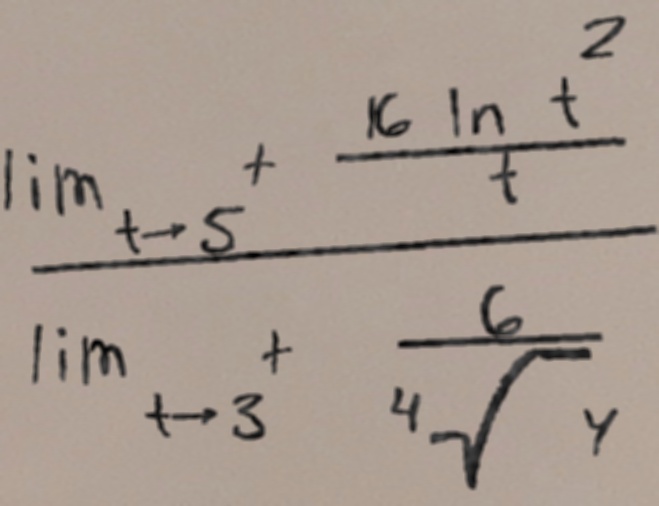 \frac{\lim_{t \to 5^+} \frac{16 \ln t^2}{t}}{\lim_{t \to 3^+} \frac{6}{\sqrt[4]{y}}}